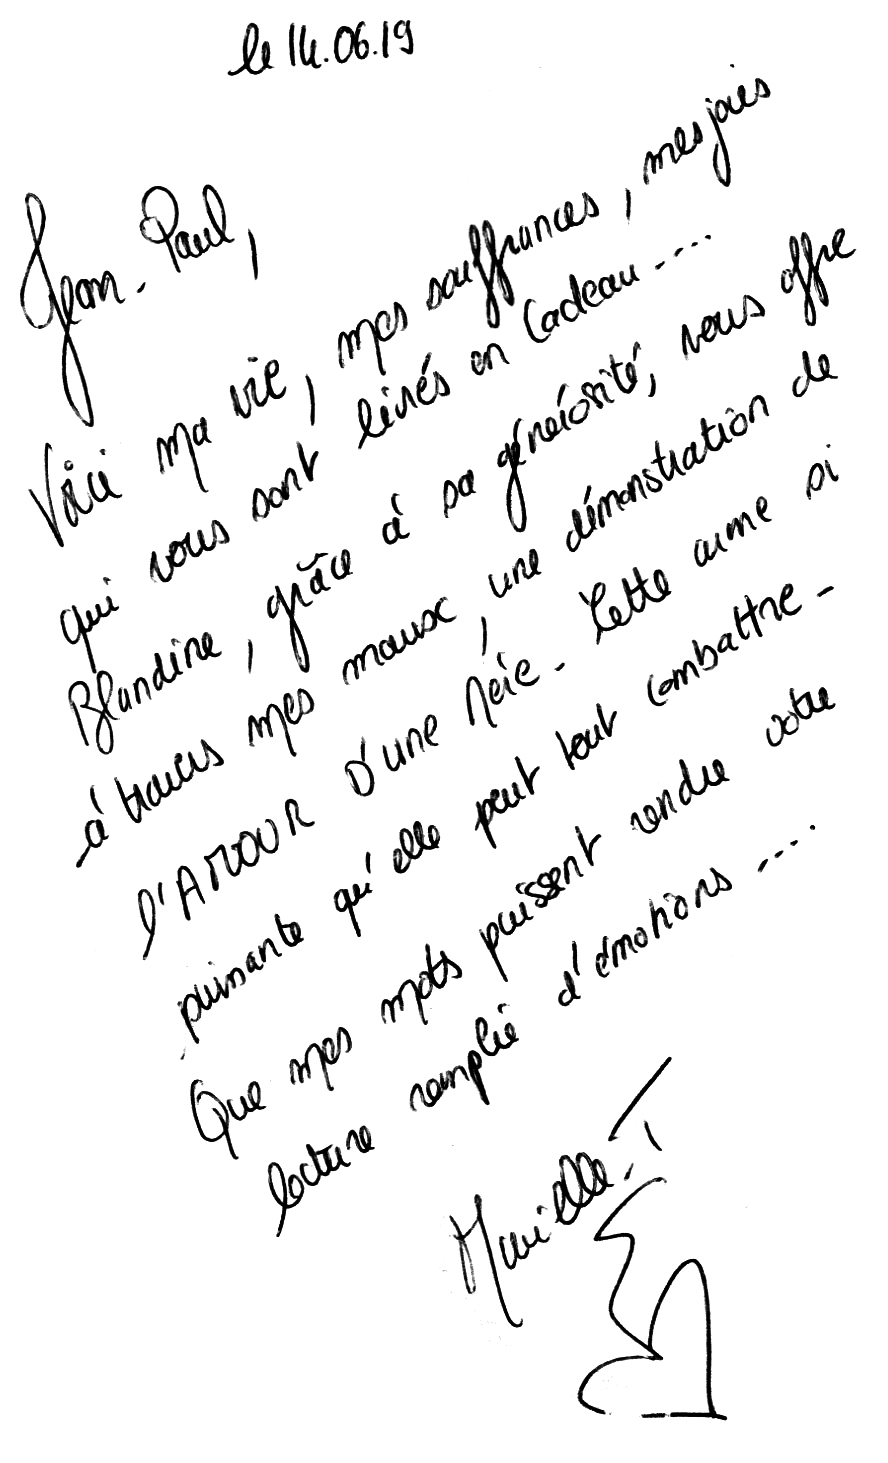 le 14.06.19
Jean-Paul,
Voici ma vie, mes souffrances, mes joies
qui vous sont livrés en cadeau....
Blandine, grâce à sa générosité, vous offre
à travers mes maux, une démonstration de
l'AMOUR D'une Mère. Cette arme si
puissante qu'elle peut tout combattre.
Que mes mots puissent rendre votre
lecture remplie d'émotions....
Marielle.T